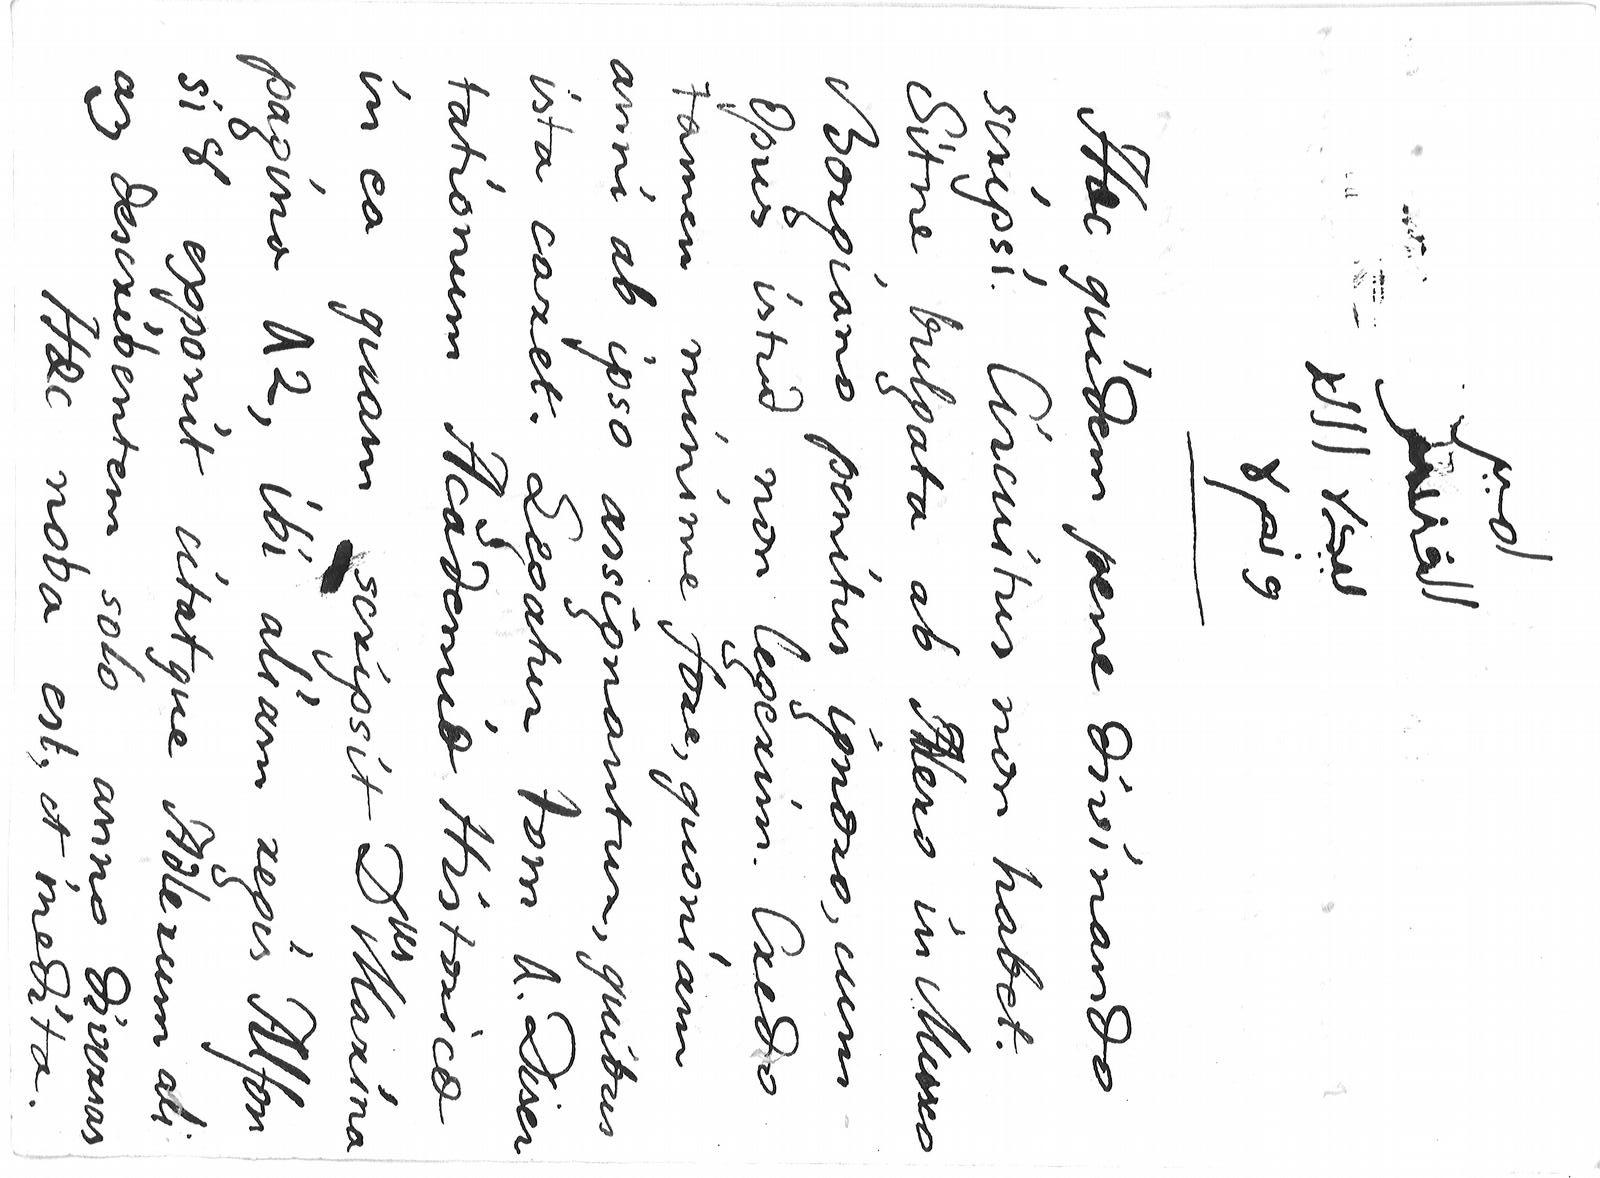 Hæc quidem pene divinando
scripsi. Circuitus non habet.
Sitne vulgata ab Adlero in Museo
Borgiano penitus ignoro, cum
Opus istud non legerim. Credo
tamen minime fore, quoniam
anni ab ipso assignantur, quibus
ista caret. Legatur Tom 1. Diser
tationum Academiæ Historicæ
in ea quam scripsit Dus Marina
pagina 12, ibi aliam regis Alfon
si 8 exponit citatque Adlerum ali
as describentem solo anno diversas
Hæc nova est, et inedita.